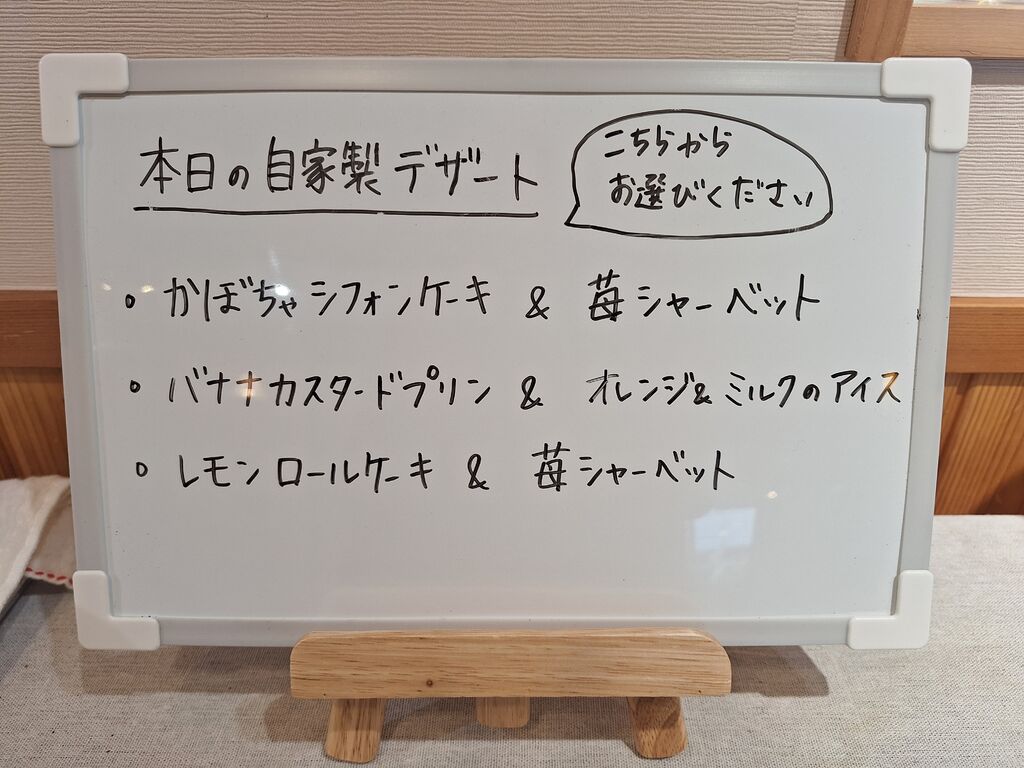 本日の自家製デザート
こちらから
お選びください
・かぼちゃシフォンケーキ & 苺シャーベット
・バナナカスタードプリン & オレンジ&ミルクのアイス
・レモンロールケーキ & 苺シャーベット